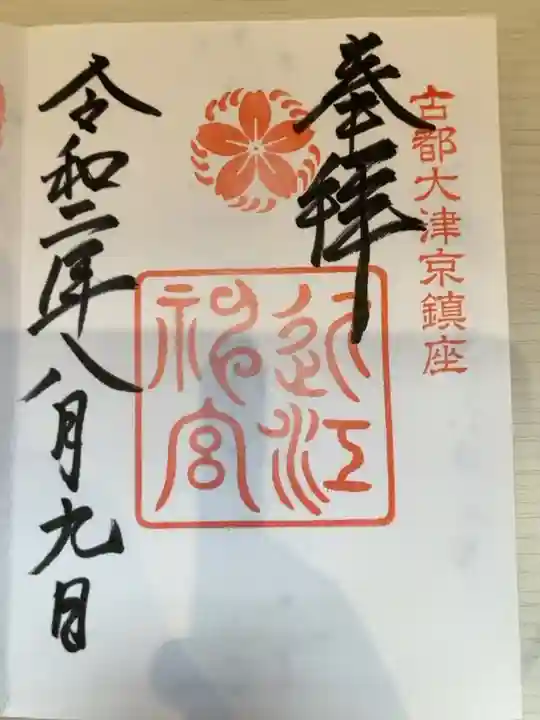 古都大津京鎮座
奉拝
近江
神宮
令和二年八月九日